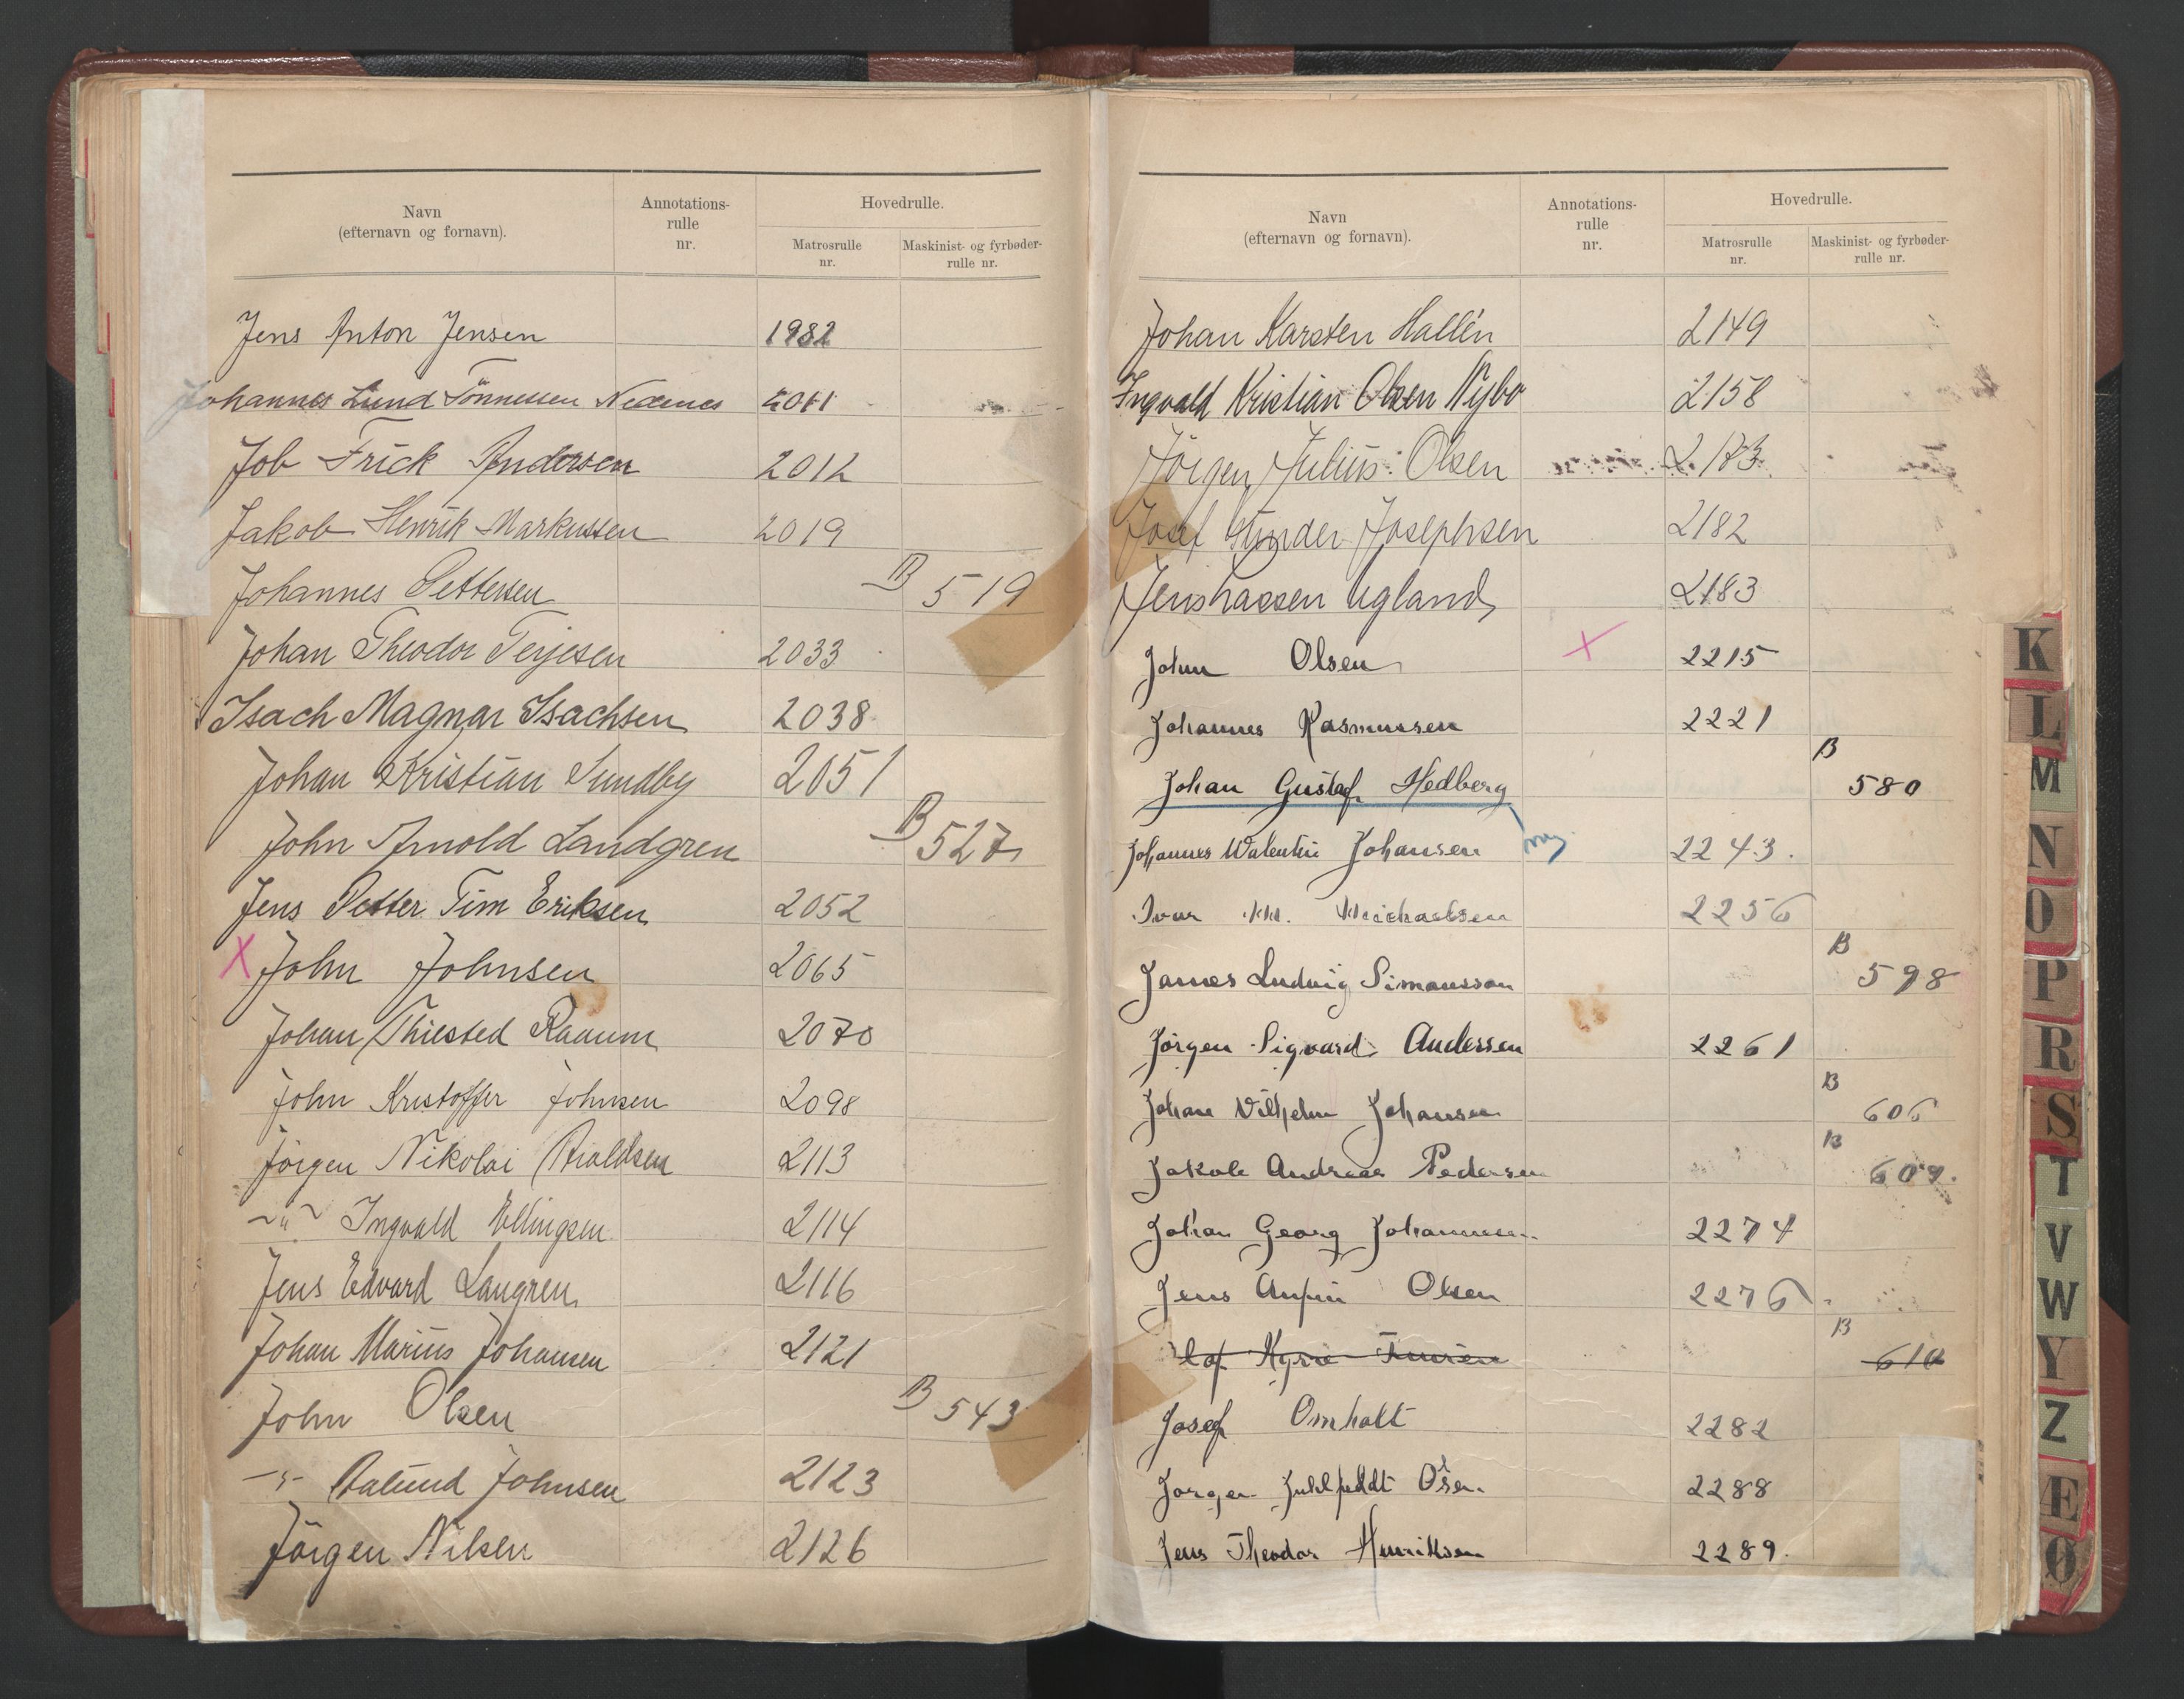 Navn
(efternavn og fornavn).
Annotations-
rulle
nr.
Hovedrulle.
Matrosrulle
nr.
Maskinist- og fyrbøder-
rulle nr.
Jens Anton Jensen 1982
Johannes Lund Tönnessen Nedenes 2011
Job Frick Andersen 2012
Jakob Henrik Markussen 2019
Johannes Pettersen B 519
Johan Theodor Terjesen 2033
Isach Magnar Isachsen 2038
Johan Kristian Sundby 2051
John Arnold Landgren B 527
Jens Petter Tim Eriksen 2052
X John Johnsen 2065
Johan Thilsted Raaum 2070
John Kristoffer Johnsen 2098
Jörgen Nikolai Aroldsen 2113
~"~ Ingvald Ellingsen 2114
Jens Edvard Langren 2116
Johan Marius Johansen 2121
John Olsen B 543
-"- Aalund Johnsen 2123
Jörgen Nilsen 2126
Navn
(efternavn og fornavn).
Annotations-
rulle
nr.
Hovedrulle.
Matrosrulle
nr.
Maskinist- og fyrbøder-
rulle nr.
Johan Karsten Hallén 2149
Ingvald Kristian Olsen Nybo 2158
Jörgen Julius Olsen 2173
Josef Josephsen 2182
Jens Ugland 2183
John Olsen X 2215
Johannes Rasmussen 2221
Johan Gustaf Hedberg B 580
Johannes Walentin Johansen ny 2243.
Ivar M. Michaelsen 2256
James Ludvig Simonsson B 598
Jørgen Sigvard Andersen 2261
Johan Vilhelm Johansen B 606
Jakob Andreas Pedersen B 609.
Johan Georg Johannesen 2274
Jens Olsen 2276
Kyrre B 610
Josef Omholt 2282
Jørgen 2288
Jens Theodor Henriksen 2289.
K
L
M
N
O
P
R
S
T
V
W
Y
Z
Æ
Ø